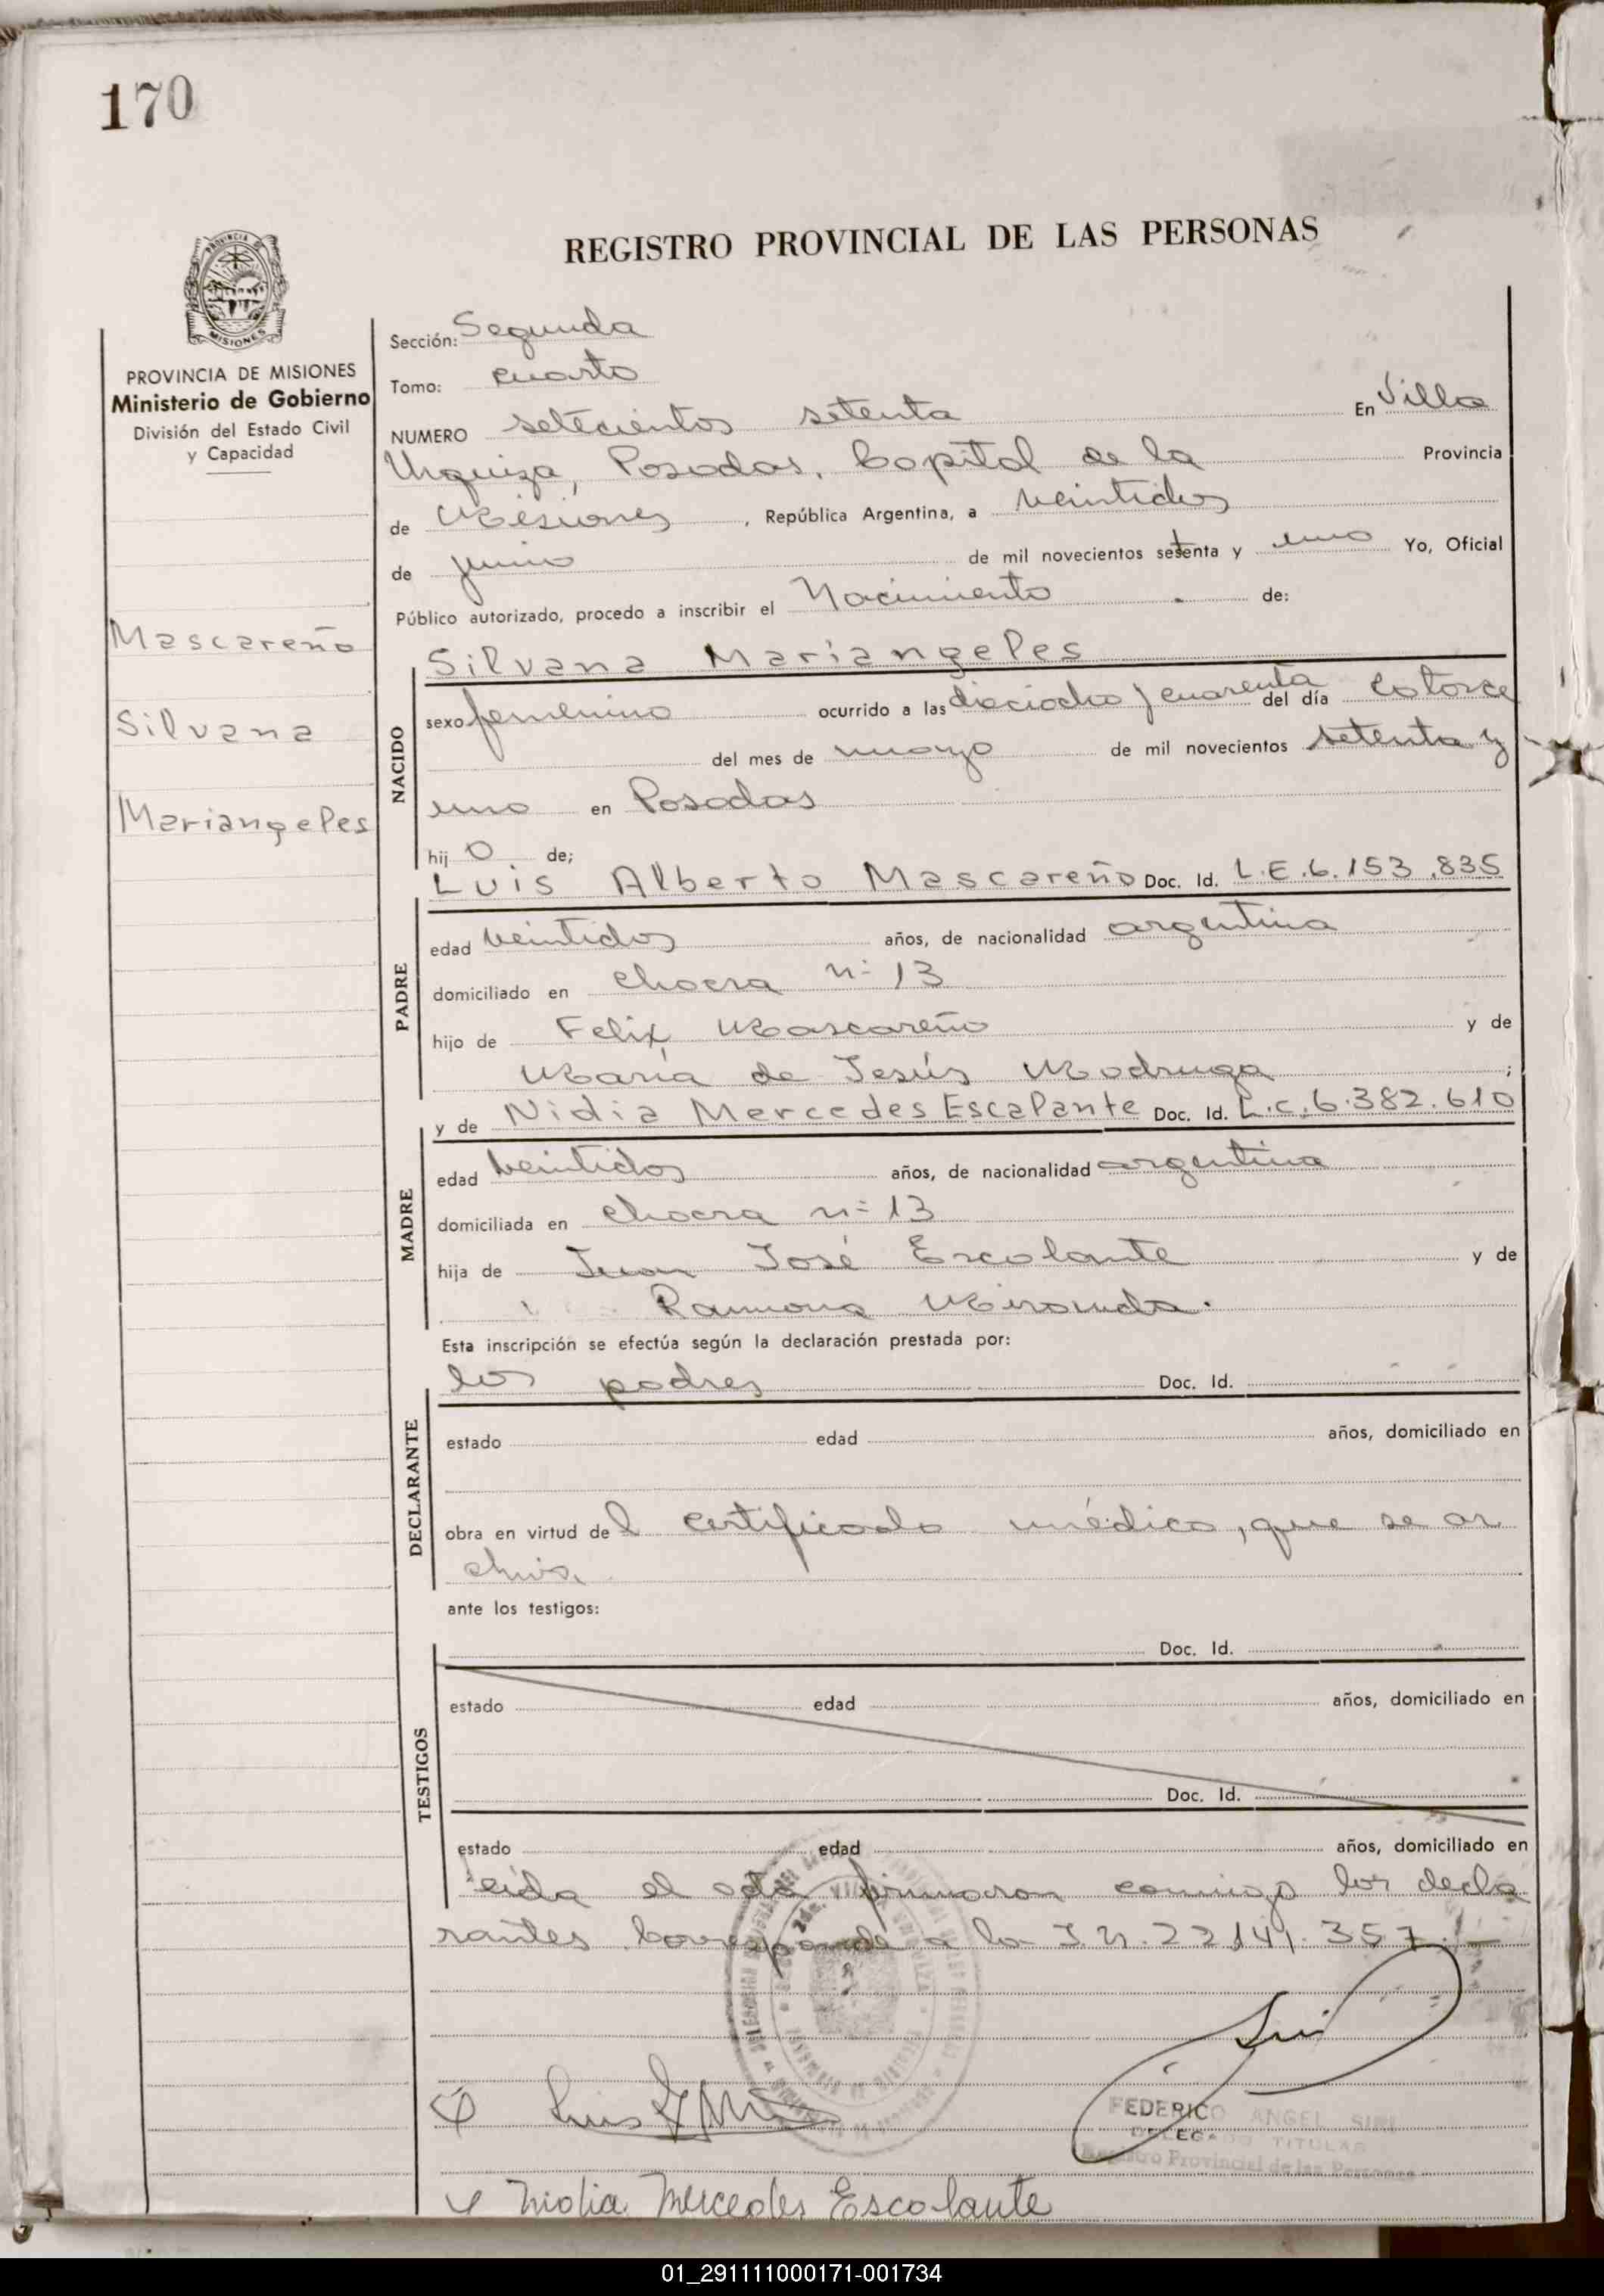 170
REGISTRO PROVINCIAL DE LAS PERSONAS
PROVINCIA DE
MISIONES
PROVINCIA DE MISIONES
Ministerio de Gobierno
División del Estado Civil
y Capacidad
Mascareño
Silvana
Mariangeles
Sección: Segunda
Tomo: cuarto
NUMERO setecientos setenta En Villa
Urquiza, Posadas, Capital de la Provincia
de Misiones, República Argentina, a veintidos
de junio de mil novecientos setenta y uno Yo, Oficial
Público autorizado, procedo a inscribir el Nacimiento de:
Silvana Mariangeles
NACIDO
sexo femenino ocurrido a las dieciocho y cuarenta del día catorce
del mes de marzo de mil novecientos setenta y
uno en Posadas
hij o de;
Luis Alberto Mascareño Doc. Id. L.E.6.153.835
PADRE
edad veintidos años, de nacionalidad argentina
domiciliado en chacra n: 13
hijo de Felix Mascareño y de
María de Jesús Madruga ;
y de Nidia Mercedes Escalante Doc. Id. L.C.6.382.610
MADRE
edad veintidos años, de nacionalidad argentina
domiciliada en chacra n: 13
hija de Juan José Escalante y de
Ramona Miranda.
Esta inscripción se efectúa según la declaración prestada por:
los padres Doc. Id.
DECLARANTE
estado edad años, domiciliado en
obra en virtud del certificado médico, que se ar
chiva.
ante los testigos:
Doc. Id.
TESTIGOS
estado edad años, domiciliado en
Doc. Id.
estado edad años, domiciliado en
leída el acta firmaron conmigo los decla
rantes Corresponde a la I.N.22.141.357.-
Luis
FEDERICO ANGEL SIRI
DELEGADO TITULAR
Registro Provincial de las Personas
Nidia Mercedes Escalante
01_291111000171-001734